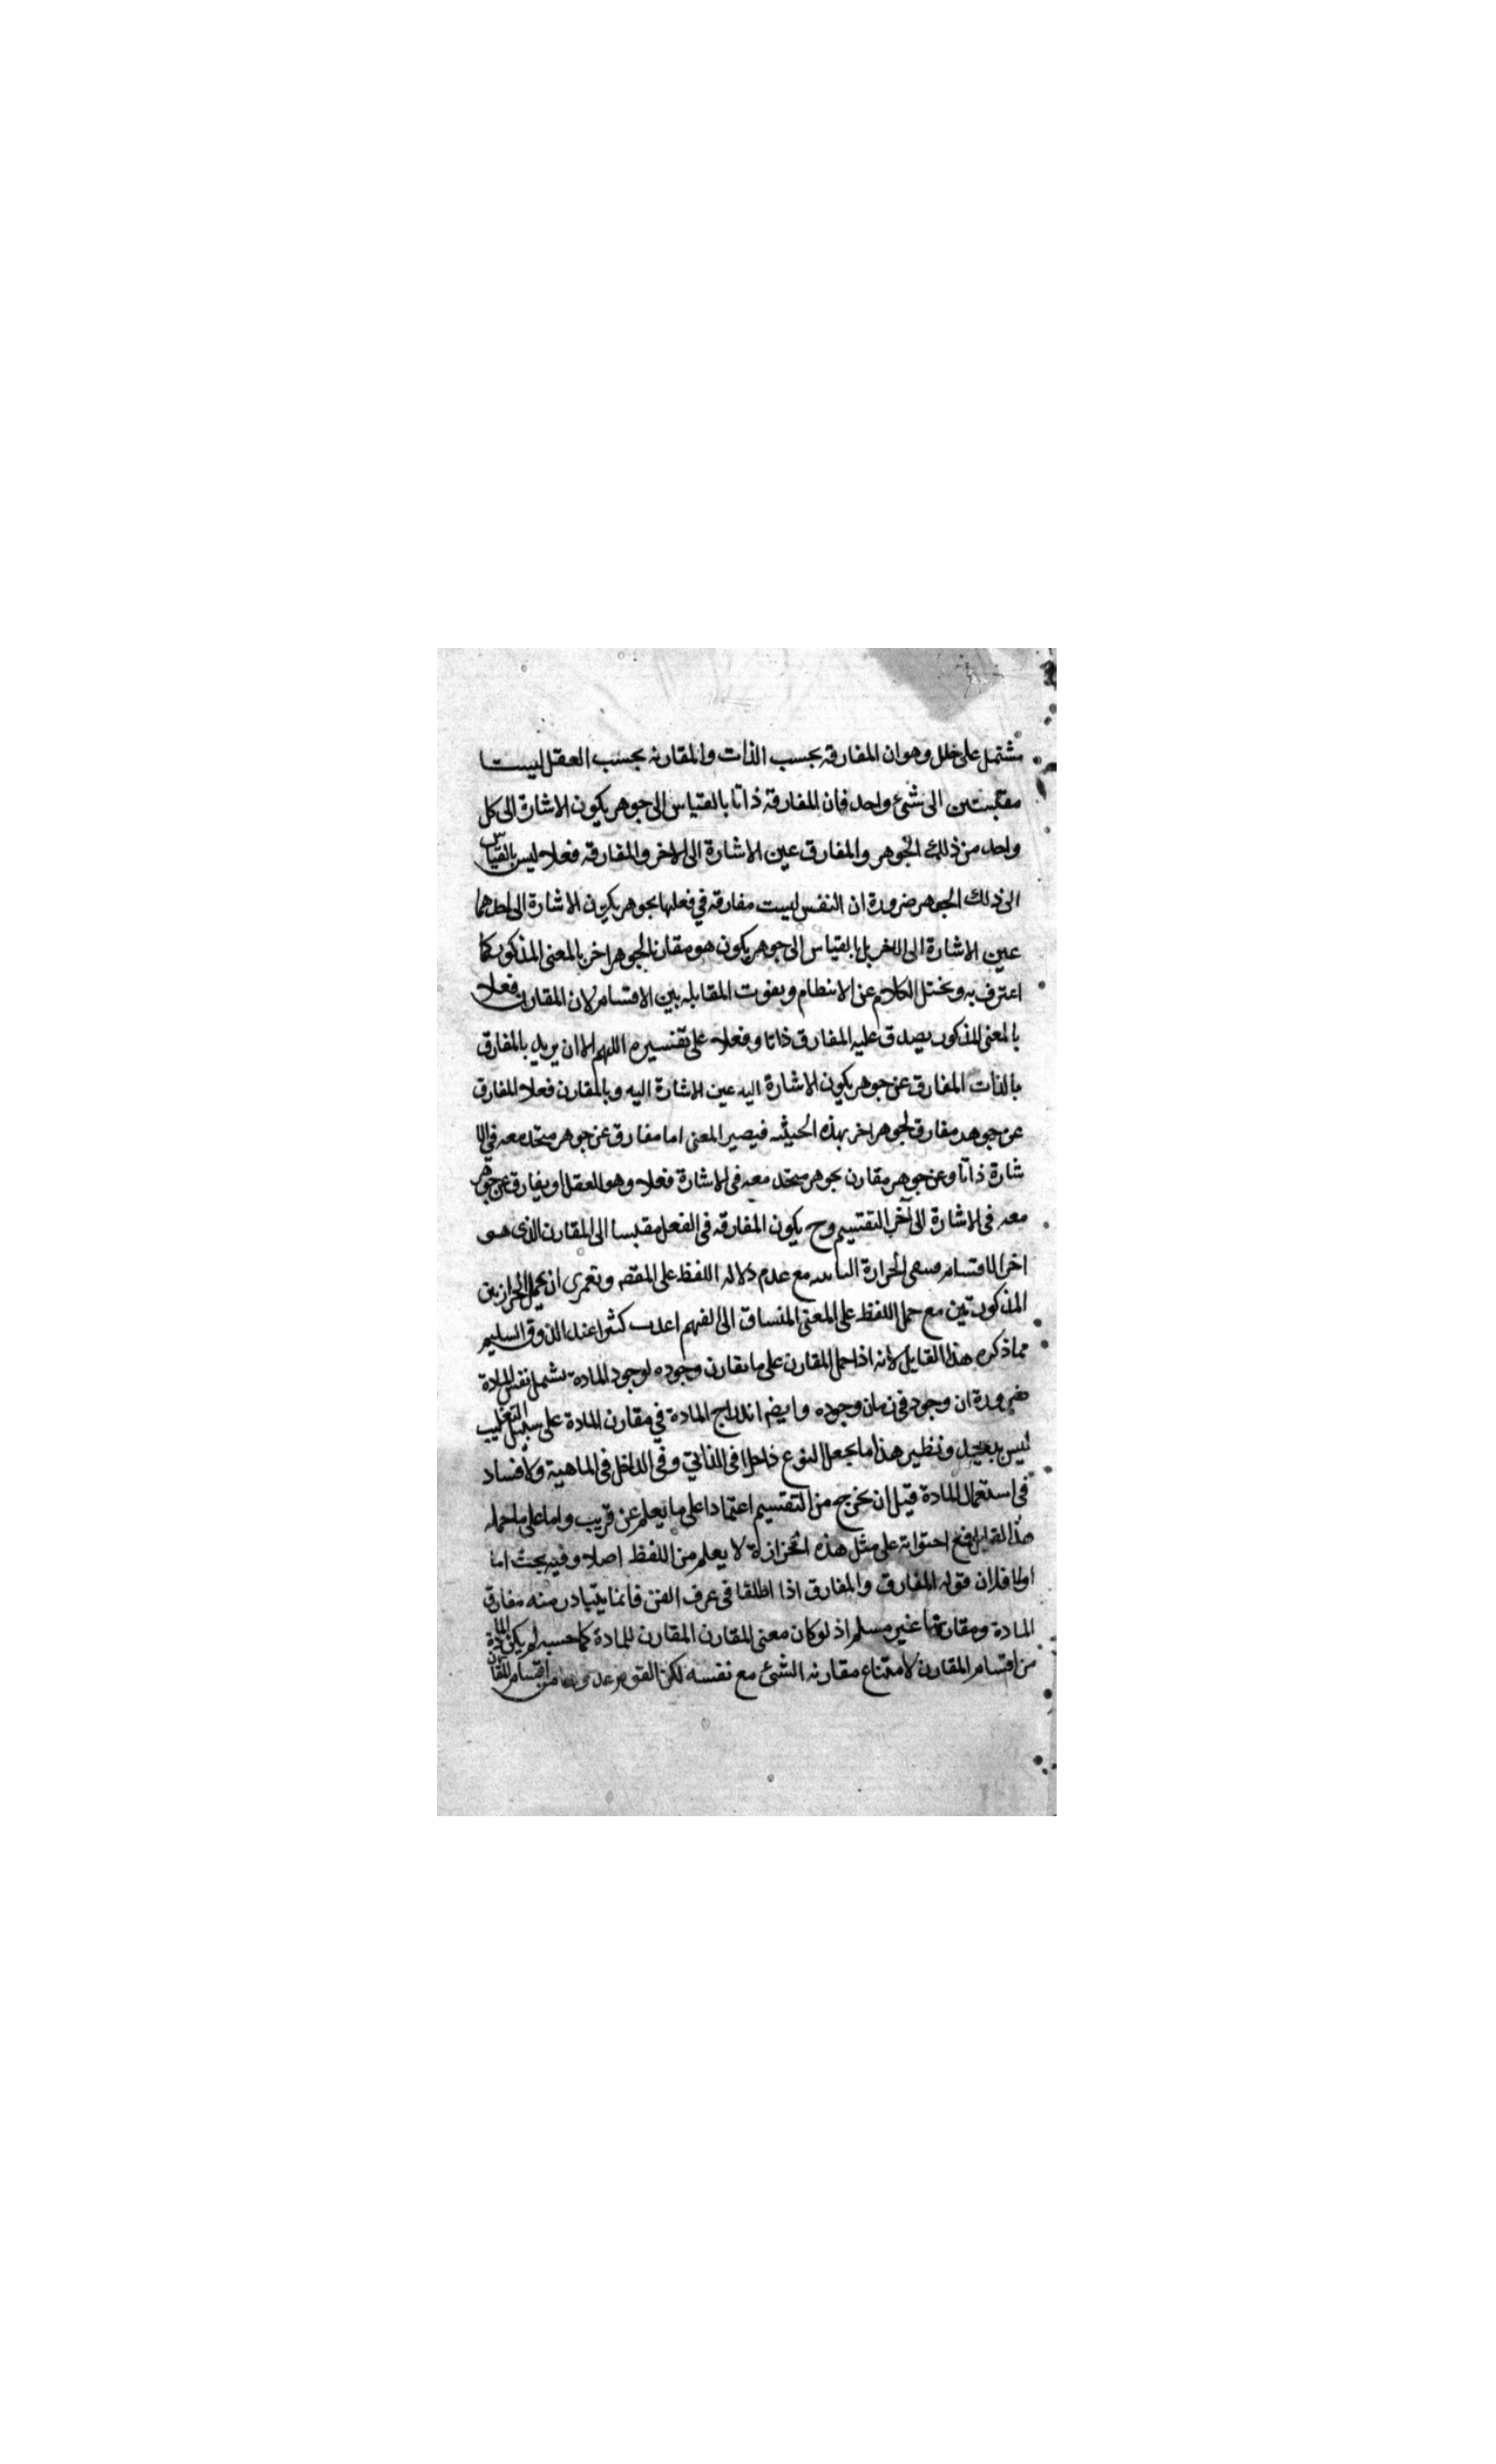 مشتمل على خلل وهو ان المفارقة بحسب الذات والمقارنه بحسب العقل ليستا
مقيستين الى شئ واحد فان المفارقة ذاتا بالقياس الى جوهر يكون الاشارة الى كل
واحد من ذلك الجوهر والمفارق عين الاشارة الى الاخر والمفارقه فعلا ليس بالقياس
الى ذلك الجوهر ضرورة ان النفس ليست مفارقه في فعلها بجوهر يكون الاشارة الى احدهما
عين الاشارة الى الاخر بل بالقياس الى جوهر يكون هو مقارنا لجوهر اخر بالمعنى المذكور كما
اعترف به ويختل الكلام عن الانتظام ويفوت المقابله بين الاقسام لان المقارن فعلا
بالمعنى المذكور يصدق عليه المفارق ذاتا وفعلا على تفسيره اللهم الا ان يريد بالمفارق
بالذات المفارق عن جوهر يكون الاشارة اليه عين الاشارة اليه وبالمقارن فعلا المفارق
عن جوهر مفارق لجوهر اخر بهذه الحيثيه فيصير المعنى اما مفارق عن جوهر متحد معه في الا
شارة ذاتا وعن جوهر مقارن بجوهر متحد معه في الاشارة فعلا وهو العقل او يفارق عن جوهر
معه في الاشارة الى آخر التقسيم وح يكون المفارقه في الفعل مقيسا الى المقارن الذى هو
اخر الاقسام الحزازة مع عدم دلاله اللفظ على المقصه ولعمرى ان يحمل الحزازتين
المذكورتين مع حمل اللفظ على المعنى المنساق الى الفهم كثيرا عند الذوق السليم
مما ذكره هذا القايل لانه اذا حمل المقارن على ما يقارن وجوده لوجود الماده يشمل نفس المادة
ضرورة ان وجود في زمان وجوده وايضا اندراج المادة في مقارن المادة على سبيل التغليب
ليس ببعيد ونظير هذا ما يجعل النوع داخلا في الذاتي وفي الداخل في الماهية ولا فساد
في استعمال المادة قبل ان يخرج من التقسيم اعتمادا على ما يعلم عن قريب واما على ما حمله
هذا القايل فمع احتوائه على مثل هذه الحزازة لا يعلم من اللفظ اصلا وفيه بحث اما
اولا فلان قوله المفارق والمفارق اذا اطلقا في عرف الفن فانما يتبادر منه مفارق
المادة ومقارنها غير مسلم اذ لو كان معنى المقارن المقارن للمادة كما حسبه لم يكن المادة
من اقسام المقارن لامتناع مقارنه الشئ مع نفسه لكن القوم من اقسام المقارن